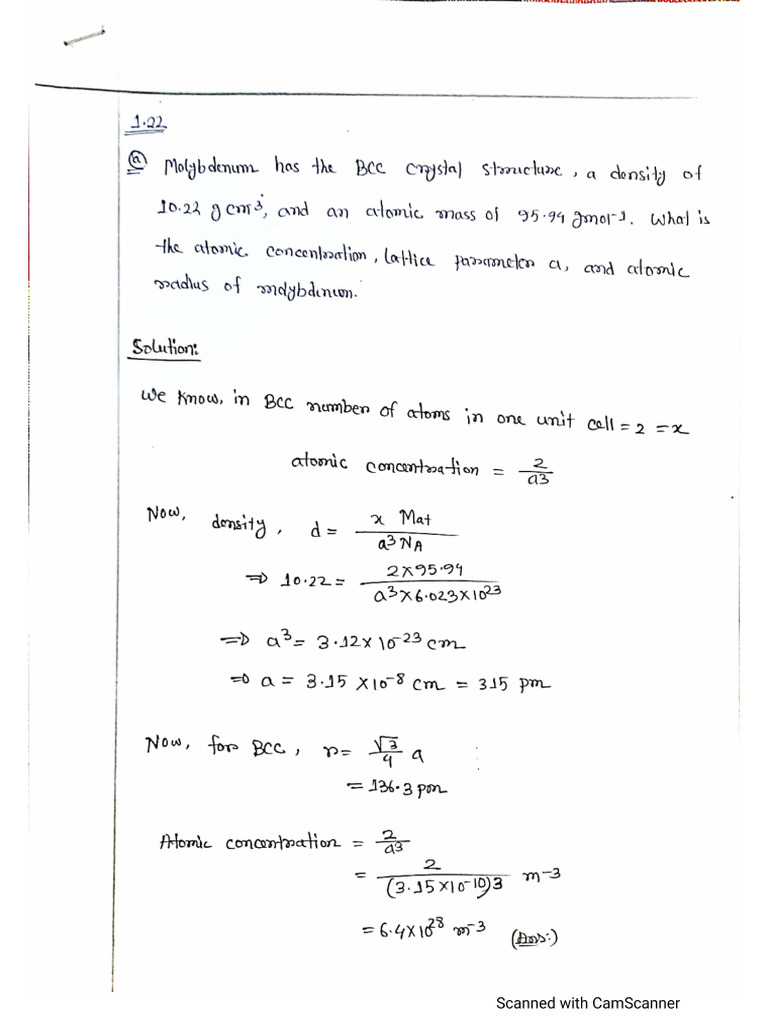 1.22
(a) Molybdenum has the BCC crystal structure, a density of
10.22 g cm³, and an atomic mass of 95.94 gmol-1. What is
the atomic concentration, lattice parameter a, and atomic
radius of molybdenum.
Solution:
We know, in BCC number of atoms in one unit cell = 2 = x
atomic concentration = 2/a3
Now, density, d = x Mat / a³ NA
⇒ 10.22 = 2×95.94 / a³×6.023×10²³
⇒ a³ = 3.12×10⁻²³ cm
⇒ a = 3.15 ×10⁻⁸ cm = 315 pm
Now, for BCC, r = √3/4 a
= 136.3 pm
Atomic concentration = 2/a3
= 2/(3.15×10⁻¹⁰)3 m-3
= 6.4×10²⁸ m-3 (Ans:)
Scanned with CamScanner